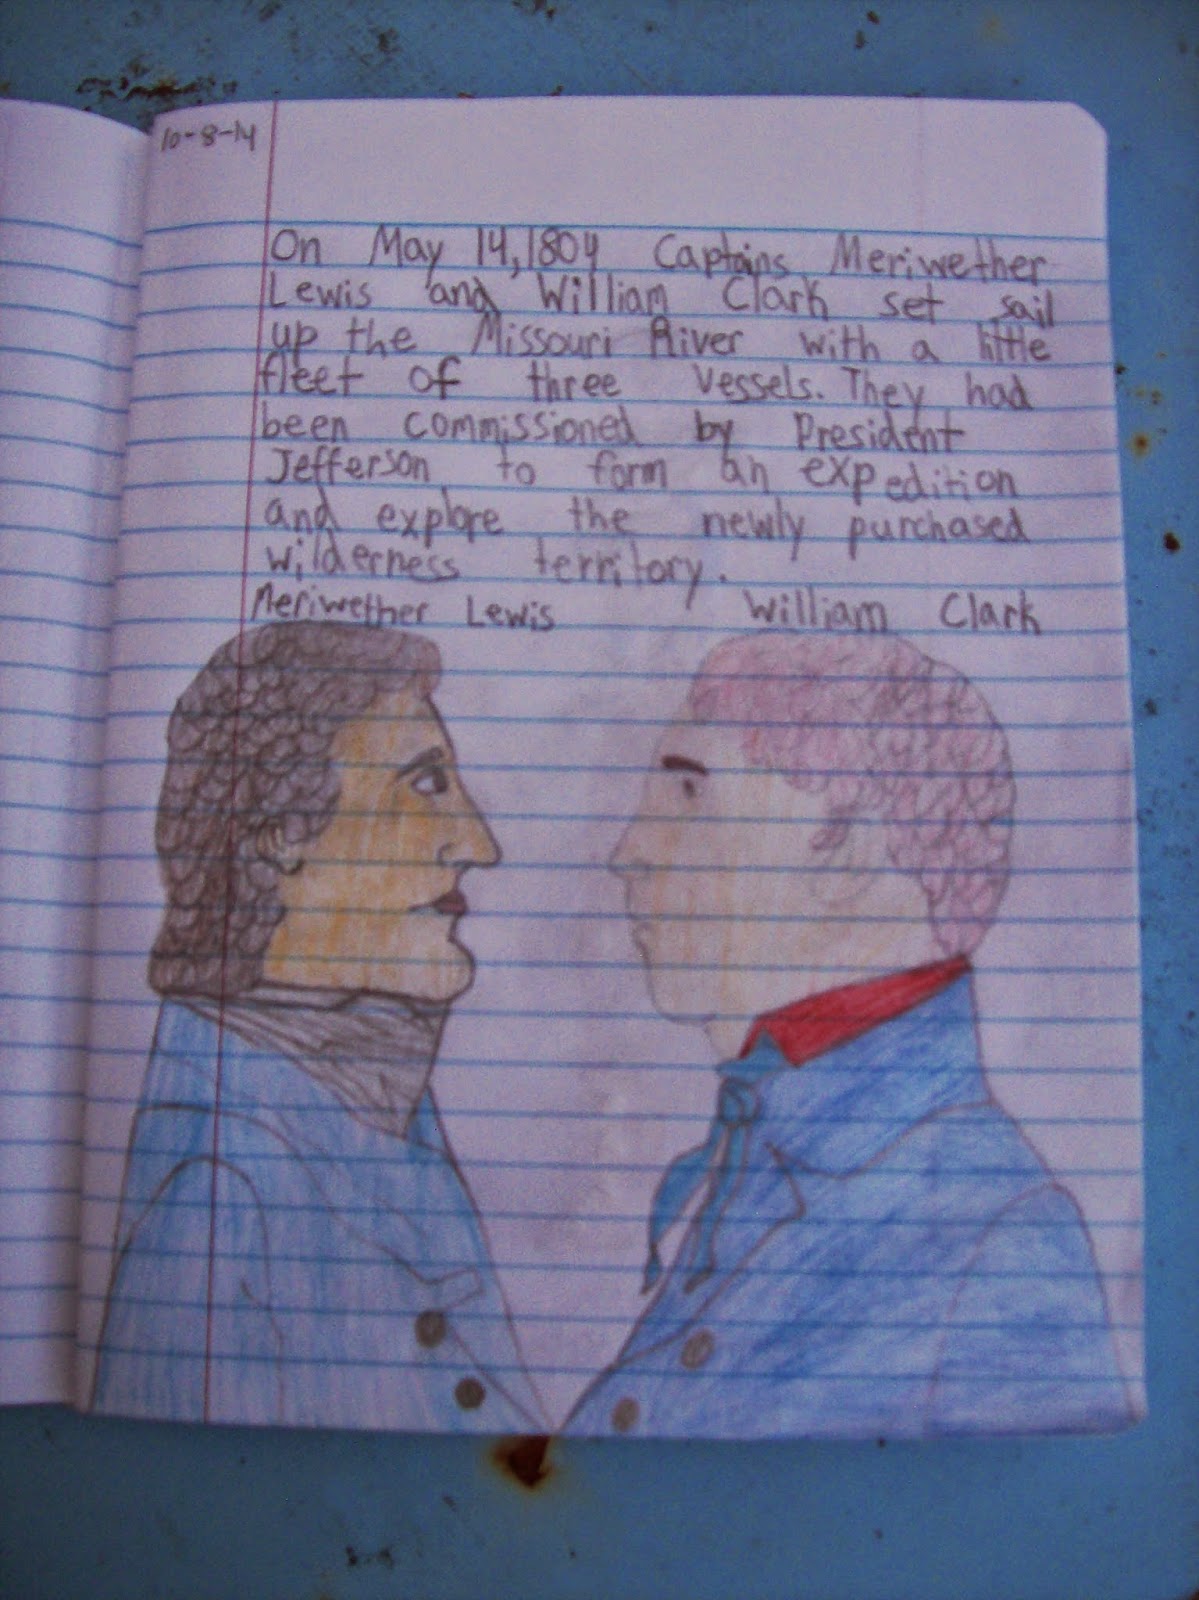 10-8-14
On May 14, 1804 Captains Meriwether
Lewis and William Clark set sail
up the Missouri River with a little
fleet of three vessels. They had
been commissioned by President
Jefferson to form an expedition
and explore the newly purchased
wilderness territory.
Meriwether Lewis William Clark